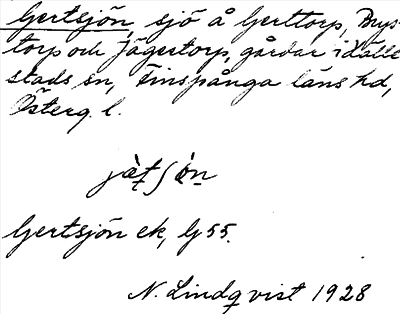 Gertsjön, sjö å Gerttorp, Brys-
torp och Jägertorp, gårdar i Hälle-
stads sn, Finspånga läns hd,
Österg. l.
Gertsjön ek, G 55.
N. Lindqvist 1928